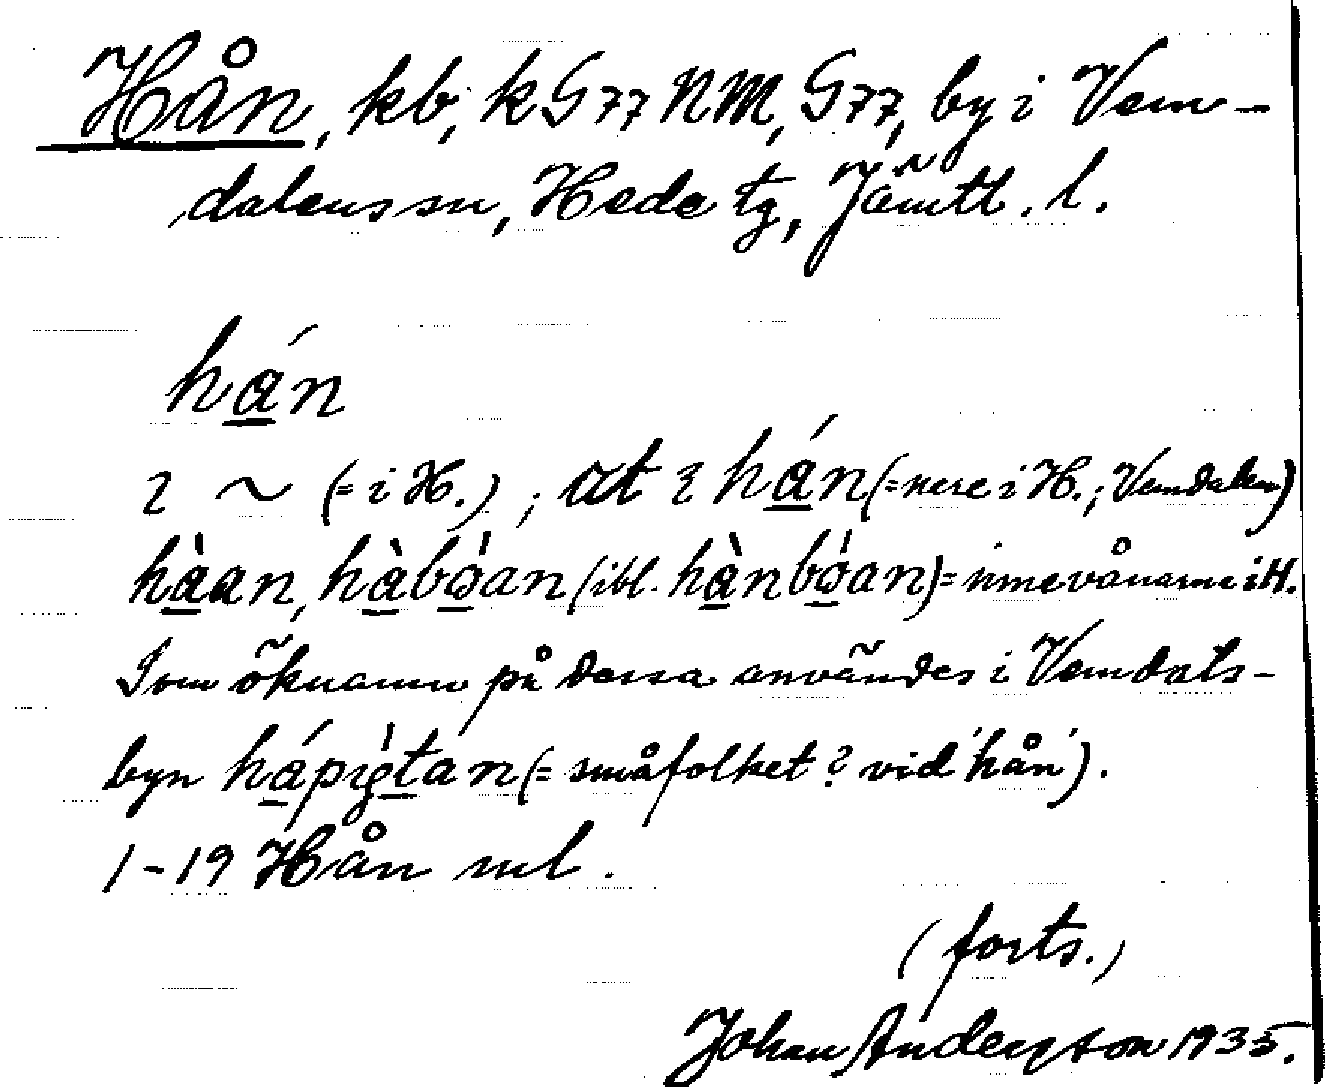 Hån, kb, k G77 NM, G77, by i Vem-
dalens sn, Hede tg, Jämtl. l.
há̱n
ɩ ~ (= i H.); at ɩ há̱n (= nere i H.; Vemdalen)
hà̱an, hà̱bo̱̍an (ibl. hà̱nbo̱̍an) = innevånarne i H.
Som öknamn på dessa användes i Vemdals-
byn há̱pıg̍ta̱n (= småfolket? vid 'hån').
1-19 Hån ml.
(forts.)
Johan Anderson 1935.